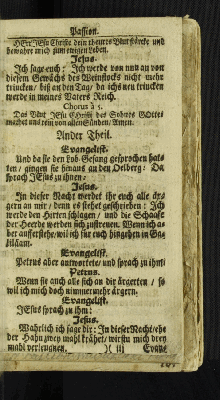 Passion.
HErr JEsu Christe dein theures Blut stärcke und
bewahre mich zum ewigen Leben.
Jesus.
Ich sage euch: Ich werde von nun an von
diesem Gewächs des Weinstocks nicht mehr
trincken/ biß an den Tag/ da ichs neu trincken
werde in meines Vaters Reich.
Chorus à 5.
Das Blut JEsu Christi des Sohnes GOttes
machet uns rein von allen Sünden/ Amen.
Ander Theil.
Evangelist.
Und da sie den Lob-Gesang gesprochen hat-
ten/ gingen sie hinaus an den Oelberg: Da
sprach JEsus zu ihnen:
Jesus.
In dieser Nacht werdet ihr euch alle är-
gern an mir/ denn es stehet geschrieben: Ich
werde den Hirten schlagen/ und die Schaafe
der Heerde werden sich zustreuen. Wenn ich a-
ber aufferstehe/ wil ich für euch hingehen in Ga-
liläam.
Evangelist.
Petrus aber antwortete/ und sprach zu ihm:
Petrus.
Wenn sie auch alle sich an dir ärgerten/ so
wil ich mich doch nimmermehr ärgern.
Evangelist.
JEsus sprach zu ihm:
Jesus.
Wahrlich ich sage dir: In dieser Nacht/ ehe
der Hahn zwey mahl krähet/ wirstu mich drey
mahl verleugnen.
Evan-